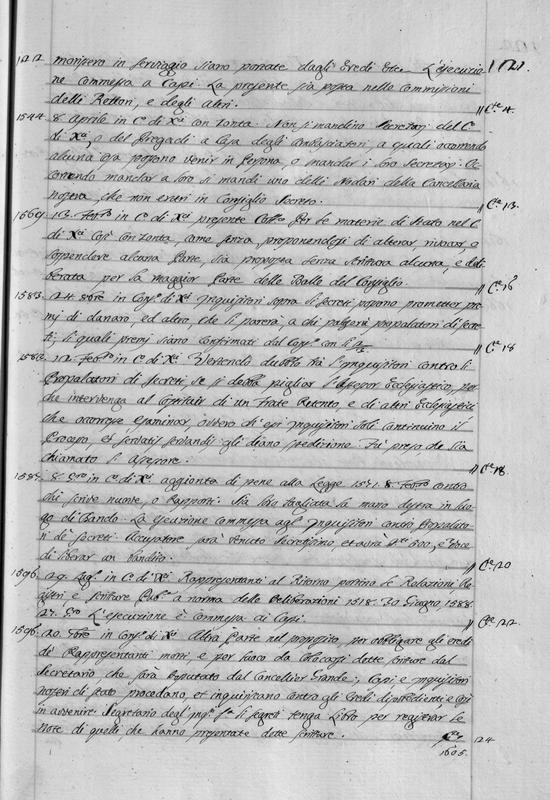 1212 morissero in servaggio siano portate dagli Eredi etc. L'esecuzio 121.
ne commessa a Capi. La presente sia posta nelle commissioni
delli Rettori, e degli altri. // Cte 4.
1544 8 Aprile in C.o di X.ci con Zonta. Non si mandino Secretarj del C.o
di X.ci, o del Pregadi a Casa degli Ambasciatori, a quali occorrendo
alcuna cosa possono venir in persona, o mandar i loro Secretarj. Oc
correndo mandar a loro si mandi uno delli Nodari della Cancellaria
nostra, che non entri in Consiglio Secreto. // Cte 13.
1569 13. Febr.o in C.o di X.ci presente Coll.o per le materie di Stato nel C.o
di X.ci così con Zonta, come senza, proponendosi di alterar, rivocar, o
sospendere alcuna Parte, sia proposta senza scrittura alcuna, e deli
berata per la maggior parte delle Balle del Consiglio. // Cte 16
1583. 24. 8bre in Cons.o di X.ci Inquisitori sopra li secreti possano prometter pre
mj di danaro, ed altro, che li parerà, a chi paleserà propalatori di secre
ti, li quali premj siano confirmati dal Cons.o con li // Cte 18
1586. 12. Febr.o in C.o di X.ci Vertendo dubbio trà l'Inquisitori contro li
Propalatori di secreti se si debba pigliar l'Assessor Ecclesiastico, per
che intervenga al Costituir di un Frate Retento, e di altri Ecclesiastici
che occorresse esaminar, ovvero che essi Inquisitori soli continuino il
Processo, et servatis servandis gli diano spedizione. Fù preso che sia
chiamato l'Assessore. // Cte 18.
1587. 8 in C.o di X.ci aggionta di pene alla Legge 1571. 8 Febr.o contra
chi scrive nuove, o Rapporti. Sia loro tagliatta la mano destra in luo
go di Bando. La esecuzione commessa agl'Inquisitori contro Propalato
ri de secreti. Accusatore sarà tenuto Secretissimo, et avrà D.ti 500, e Voce
di liberar un bandito. // Cte 20
1596. 29. in C.o di X.ci Rappresentanti al Ritorno portino le Relazioni, Re
gistri e scritture Pub.e a norma delle Deliberazioni 1518. 30 Giugno, 1588.
27. L'esecuzione è commessa ai Capi. // Cte 22.
1596. 20. 8bre in Cons.o di X.ci Altra Parte nel proposito, per obbligare gli eredi
de Rappresentanti morti, e per luoco da collocarsi dette scritture dal
Secretario, che sarà Deputato dal Cancellier Grande; Capi e Inquisitori
nostri di stato procedano, et inquiriscano contro gli Eredi disobbedienti, e così
in avvenire. Segretario degl'Inq.ri s.a li segreti tenga Libro per registrar le
Note di quelli che hanno presentate dette scritture. Cte 124
1605.